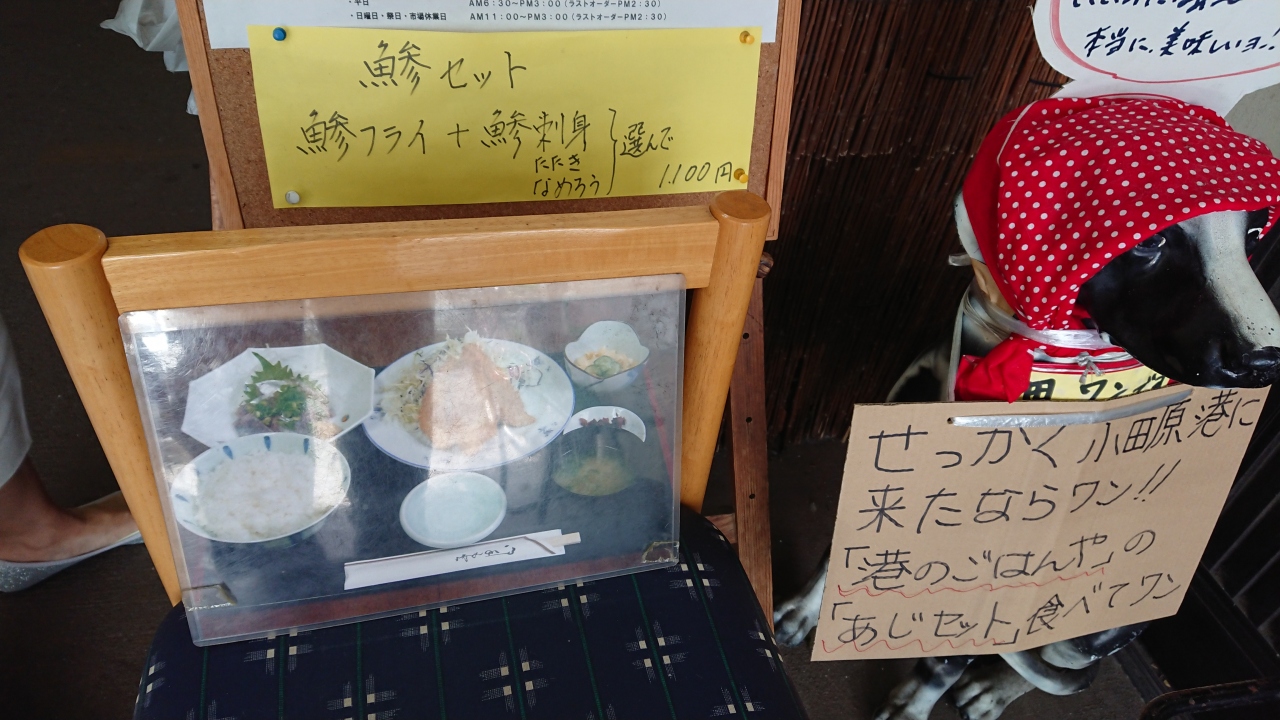 ・平日 AM6:30〜PM3:00(ラストオーダーPM2:30)
・日曜日・祭日・市場休業日 AM11:00〜PM3:00(ラストオーダーPM2:30)
鯵セット
鯵フライ+鯵刺身
たたき
なめろう
選んで
1.100円
本当に、美味しいヨ!!
せっかく小田原港に
来たならワン!!
「港のごはんや」の
「あじセット」食べてワン